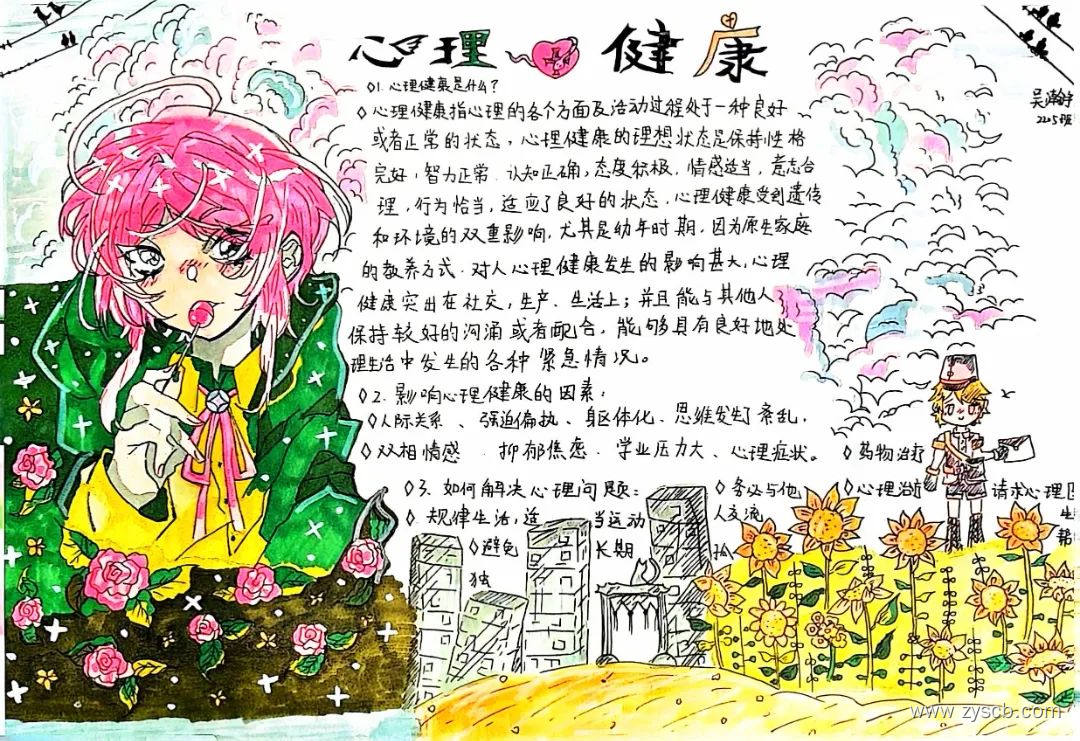 心理健康
吴瀚宇
2205班
◇1.心理健康是什么?
◇心理健康指心理的各个方面及活动过程处于一种良好
或者正常的状态,心理健康的理想状态是保持性格
完好,智力正常.认知正确,态度积极,情感适当,意志合
理,行为恰当,适应了良好的状态.心理健康受到遗传
和环境的双重影响,尤其是幼年时期,因为原生家庭
的教养方式.对人心理健康发生的影响甚大,心理
健康突出在社交,生产、生活上;并且能与其他人
保持较好的沟涌或者配合,能够具有良好地处
理生活中发生的各种紧急情况。
◇2.影响心理健康的因素:
◇人际关系、强迫偏执、身区体化、思维发生了紊乱,
◇双相情感.抑郁焦虑.学业压力大、心理症状。
◇3.如何解决心理问题:
◇规律生活,适当运动
◇避免长期孤
独
◇务必与他
人交流
◇药物治疗
◇心理治疗
请求心理医
生
帮
www.zyscb.com